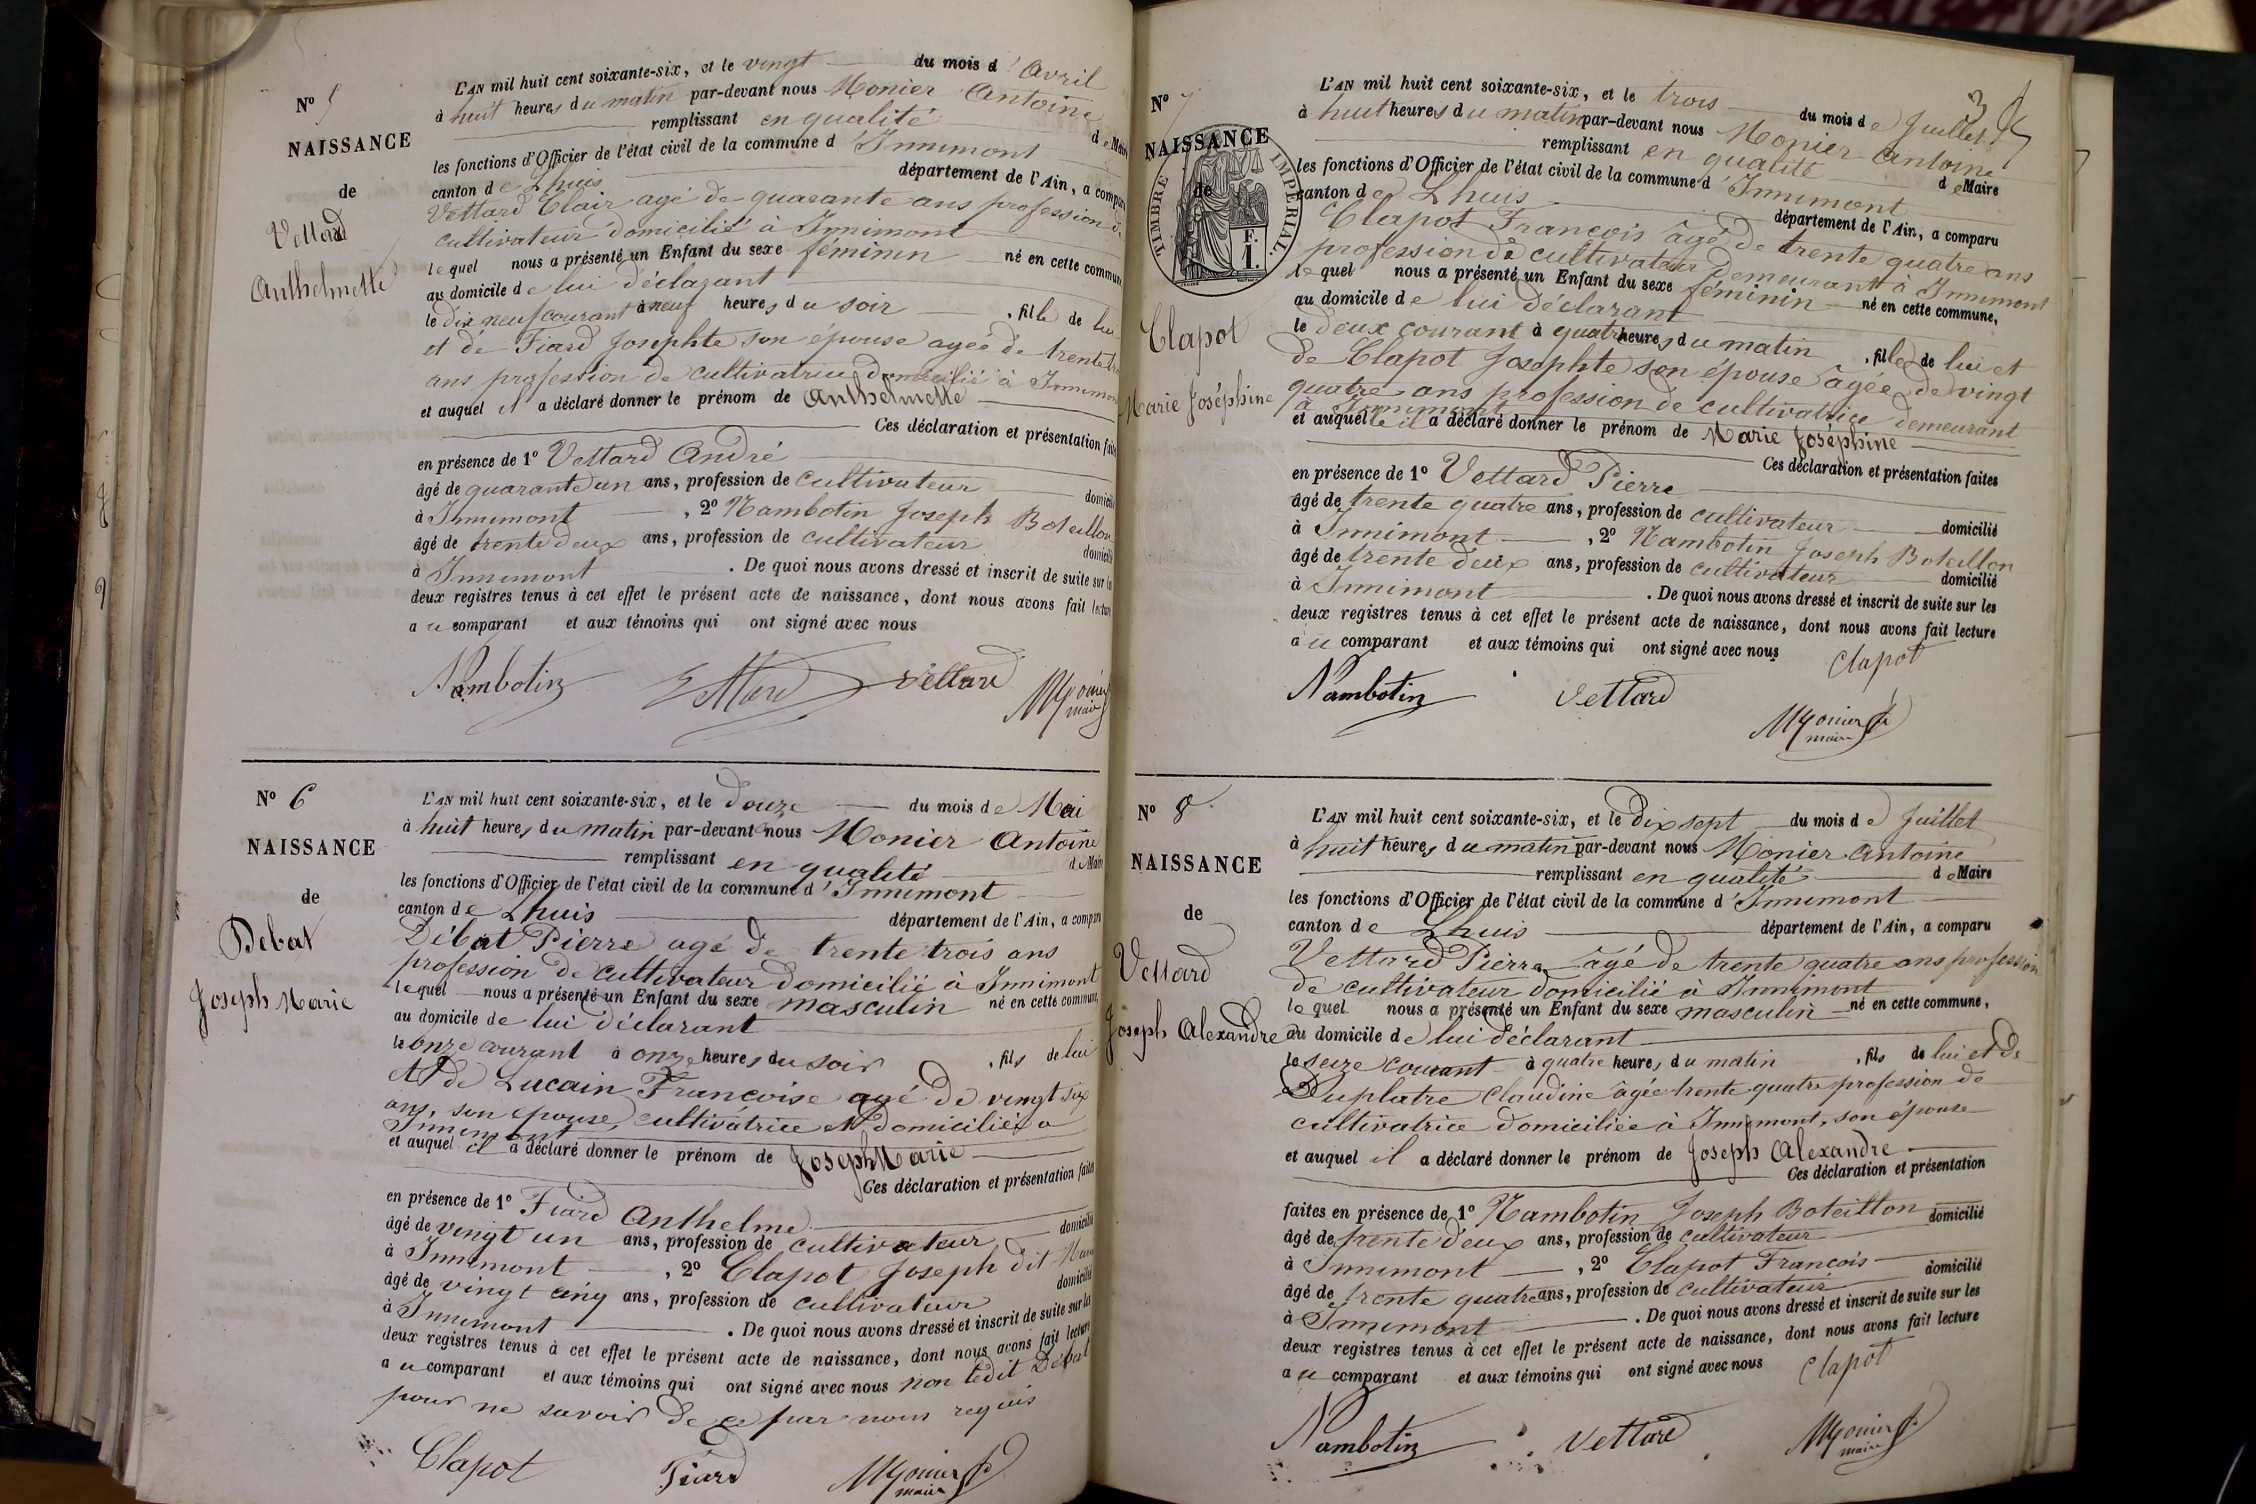 N° 5
NAISSANCE
de
Vettard
Anthelmette
L'AN mil huit cent soixante-six, et le vingt du mois d'Avril
à huit heures du matin par-devant nous Monier Antoine
remplissant en qualité de Maire
les fonctions d'Officier de l'état civil de la commune d'Innimont
canton de Lhuis département de l'Ain, a comparu
Vettard Clair agé de quarante ans profession de
cultivateur domicilié à Innimont
lequel nous a présenté un Enfant du sexe féminin né en cette commune
au domicile de lui déclarant
le dix neuf courant à neuf heures du soir, fille de lui
et de Fiard Josephte son épouse agée de trente
ans profession de cultivatrice domicilié à Innimont
et auquel il a déclaré donner le prénom de Anthelmette
Ces déclaration et présentation faites
en présence de 1° Vettard André
âgé de quarante un ans, profession de cultivateur domicilié
à Innimont, 2° Nambotin Joseph Boteillon
âgé de trente deux ans, profession de cultivateur domicilié
à Innimont. De quoi nous avons dressé et inscrit de suite sur les
deux registres tenus à cet effet le présent acte de naissance, dont nous avons fait lecture
au comparant et aux témoins qui ont signé avec nous
Nambotin Vettard Vettard Monier
maire
N° 6
NAISSANCE
de
Debat
Joseph Marie
L'AN mil huit cent soixante-six, et le douze du mois de Mai
à huit heures du matin par-devant nous Monier Antoine
remplissant en qualité de Maire
les fonctions d'Officier de l'état civil de la commune d'Innimont
canton de Lhuis département de l'Ain, a comparu
Débat Pierre agé de trente trois ans
profession de cultivateur domicilié à Innimont
lequel nous a présenté un Enfant du sexe masculin né en cette commune,
au domicile de lui déclarant
le onze courant à onze heures du soir, fils de lui
et de Lucain Françoise agé de vingt six
ans, son épouse, cultivatrice et domiciliée a
Innimont
et auquel il a déclaré donner le prénom de Joseph Marie
Ces déclaration et présentation faites
en présence de 1° Fiard Anthelme
âgé de vingt un ans, profession de cultivateur domicilié
à Innimont, 2° Clapot Joseph dit
âgé de vingt cinq ans, profession de cultivateur domicilié
à Innimont. De quoi nous avons dressé et inscrit de suite sur les
deux registres tenus à cet effet le présent acte de naissance, dont nous avons fait lecture
au comparant et aux témoins qui ont signé avec nous non ledit Débat
pour ne savoir de ce par nous requis
Clapot Fiard Monier
maire
3
N° 7
NAISSANCE
de
TIMBRE IMPÉRIAL
F.
1.
Clapot
Marie Joséphine
L'AN mil huit cent soixante-six, et le trois du mois de Juillet
à huit heures du matin par-devant nous Monier Antoine
remplissant en qualité de Maire
les fonctions d'Officier de l'état civil de la commune d'Innimont
canton de Lhuis département de l'Ain, a comparu
Clapot Francois âgé de trente quatre ans
profession de cultivateur demeurant à Innimont
lequel nous a présenté un Enfant du sexe féminin né en cette commune,
au domicile de lui déclarant
le deux courant à quatre heures du matin, fille de lui et
de Clapot Josephte son épouse âgée de vingt
quatre ans profession de cultivatrice demeurant
à Innimont
et auquelle il a déclaré donner le prénom de Marie Joséphine
Ces déclaration et présentation faites
en présence de 1° Vettard Pierre
âgé de trente quatre ans, profession de cultivateur domicilié
à Innimont, 2° Nambotin Joseph Boteillon
âgé de trente deux ans, profession de cultivateur domicilié
à Innimont. De quoi nous avons dressé et inscrit de suite sur les
deux registres tenus à cet effet le présent acte de naissance, dont nous avons fait lecture
au comparant et aux témoins qui ont signé avec nous Clapot
Nambotin Vettard Monier
maire
N° 8
NAISSANCE
de
Vettard
Joseph Alexandre
L'AN mil huit cent soixante-six, et le dix sept du mois de Juillet
à huit heures du matin par-devant nous Monier Antoine
remplissant en qualité de Maire
les fonctions d'Officier de l'état civil de la commune d'Innimont
canton de Lhuis département de l'Ain, a comparu
Vettard Pierre âgé de trente quatre ans profession
de cultivateur domicilié à Innimont
lequel nous a présenté un Enfant du sexe masculin né en cette commune,
au domicile de lui déclarant
le seize courant à quatre heures du matin, fils de lui et de
Duplatre Claudine âgée trente quatre profession de
cultivatrice domiciliée à Innimont, son épouse
et auquel il a déclaré donner le prénom de Joseph Alexandre
Ces déclaration et présentation
faites en présence de 1° Nambotin Joseph Boteillon domicilié
âgé de trente deux ans, profession de cultivateur
à Innimont, 2° Clapot Francois domicilié
âgé de trente quatre ans, profession de cultivateur
à Innimont. De quoi nous avons dressé et inscrit de suite sur les
deux registres tenus à cet effet le présent acte de naissance, dont nous avons fait lecture
au comparant et aux témoins qui ont signé avec nous Clapot
Nambotin Vettard Monier
maire